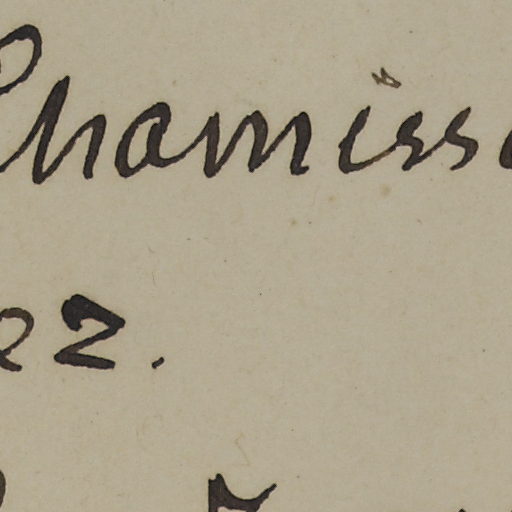 Chamisso
ez.